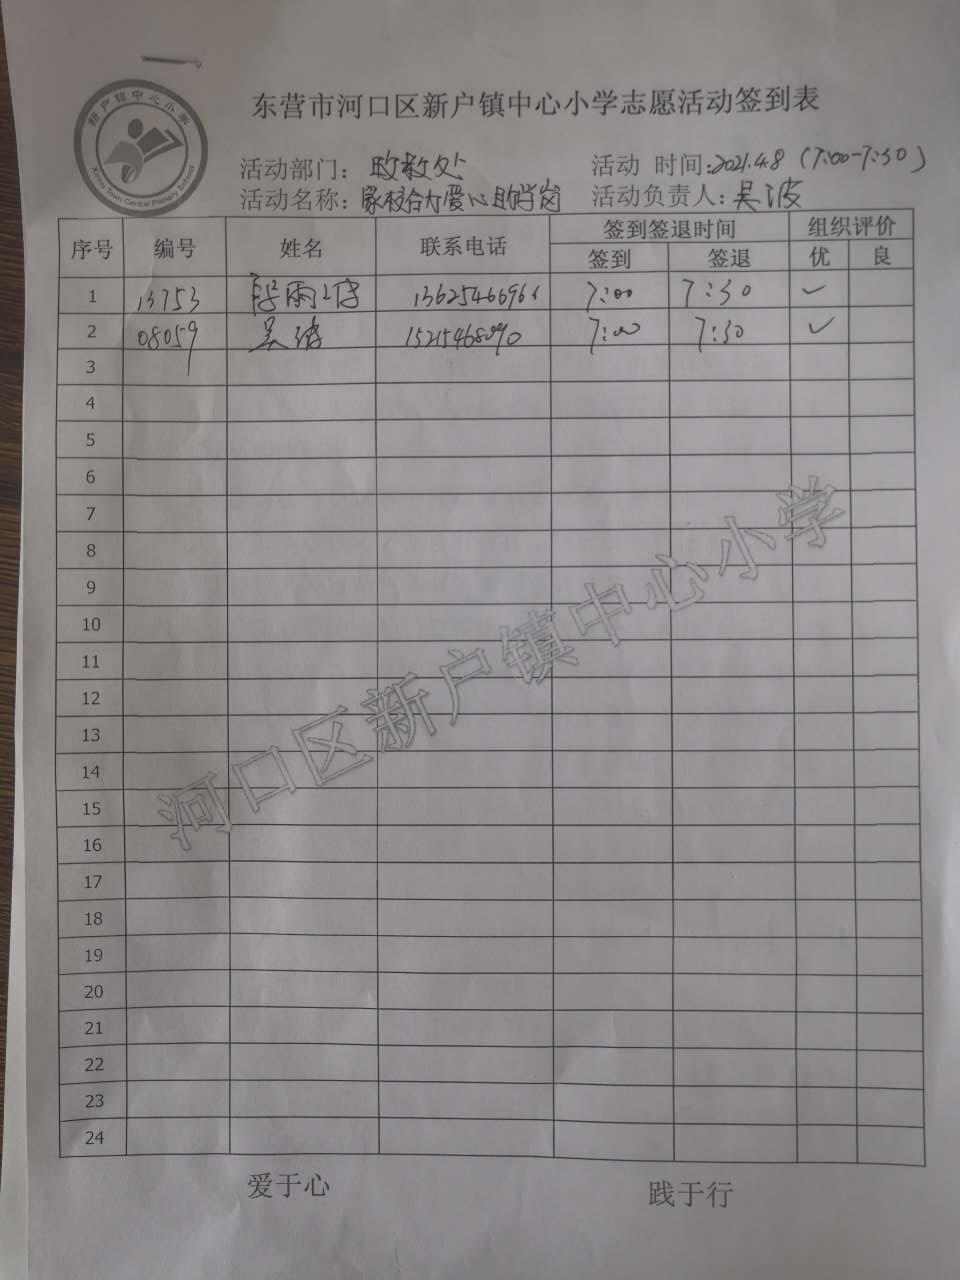 东营市河口区新户镇中心小学志愿活动签到表
新户镇中心小学
Xinhu Town Central Primary School
活动部门: 政教处 活动 时间:2021.4.8 (7:00-7:30)
活动名称: 家校合力爱心护学岗 活动负责人:吴波
序号 编号 姓名 联系电话 签到签退时间 组织评价
签到 签退 优 良
1 13753 段雨 1362546696 7:00 7:30 ✓
2 08059 吴 15215468090 7:00 7:30 ✓
3
4
5
6
7
8
9
10
11
12
13
14
15
16
17
18
19
20
21
22
23
24
河口区新户镇中心小学
爱于心 践于行